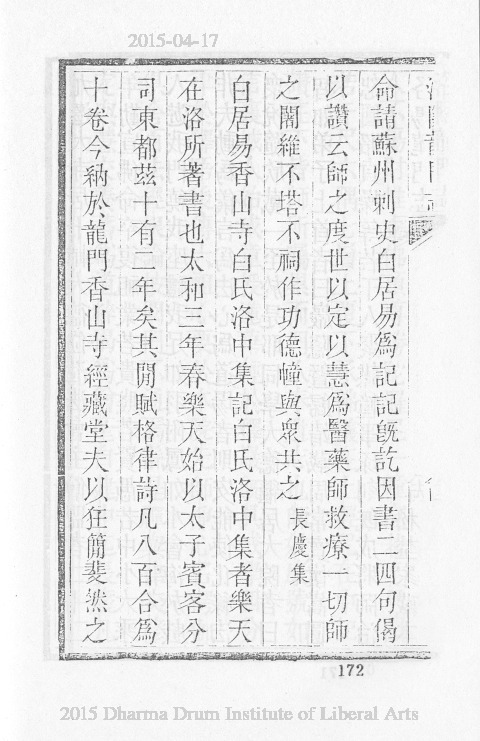 2015-04-17
命請蘇州刺史白居易爲記記旣訖因書二四句偈
以讚云師之度世以定以慧爲醫藥師救療一切師
之闍維不塔不祠作功德幢與衆共之 長慶集
白居易香山寺白氏洛中集記白氏洛中集者樂天
在洛所著書也太和三年春樂天始以太子賓客分
司東都茲十有二年矣其閒賦格律詩凡八百合爲
十卷今納於龍門香山寺經藏堂夫以狂簡斐然之
172
2015 Dharma Drum Institute of Liberal Arts